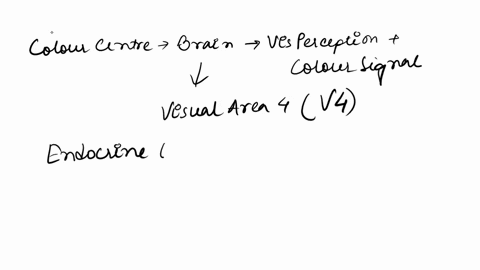 Colour Centre → Brain → Ves Perception +
Colour Signal
↓
Vesual Area 4 (V4)
Endocrine (